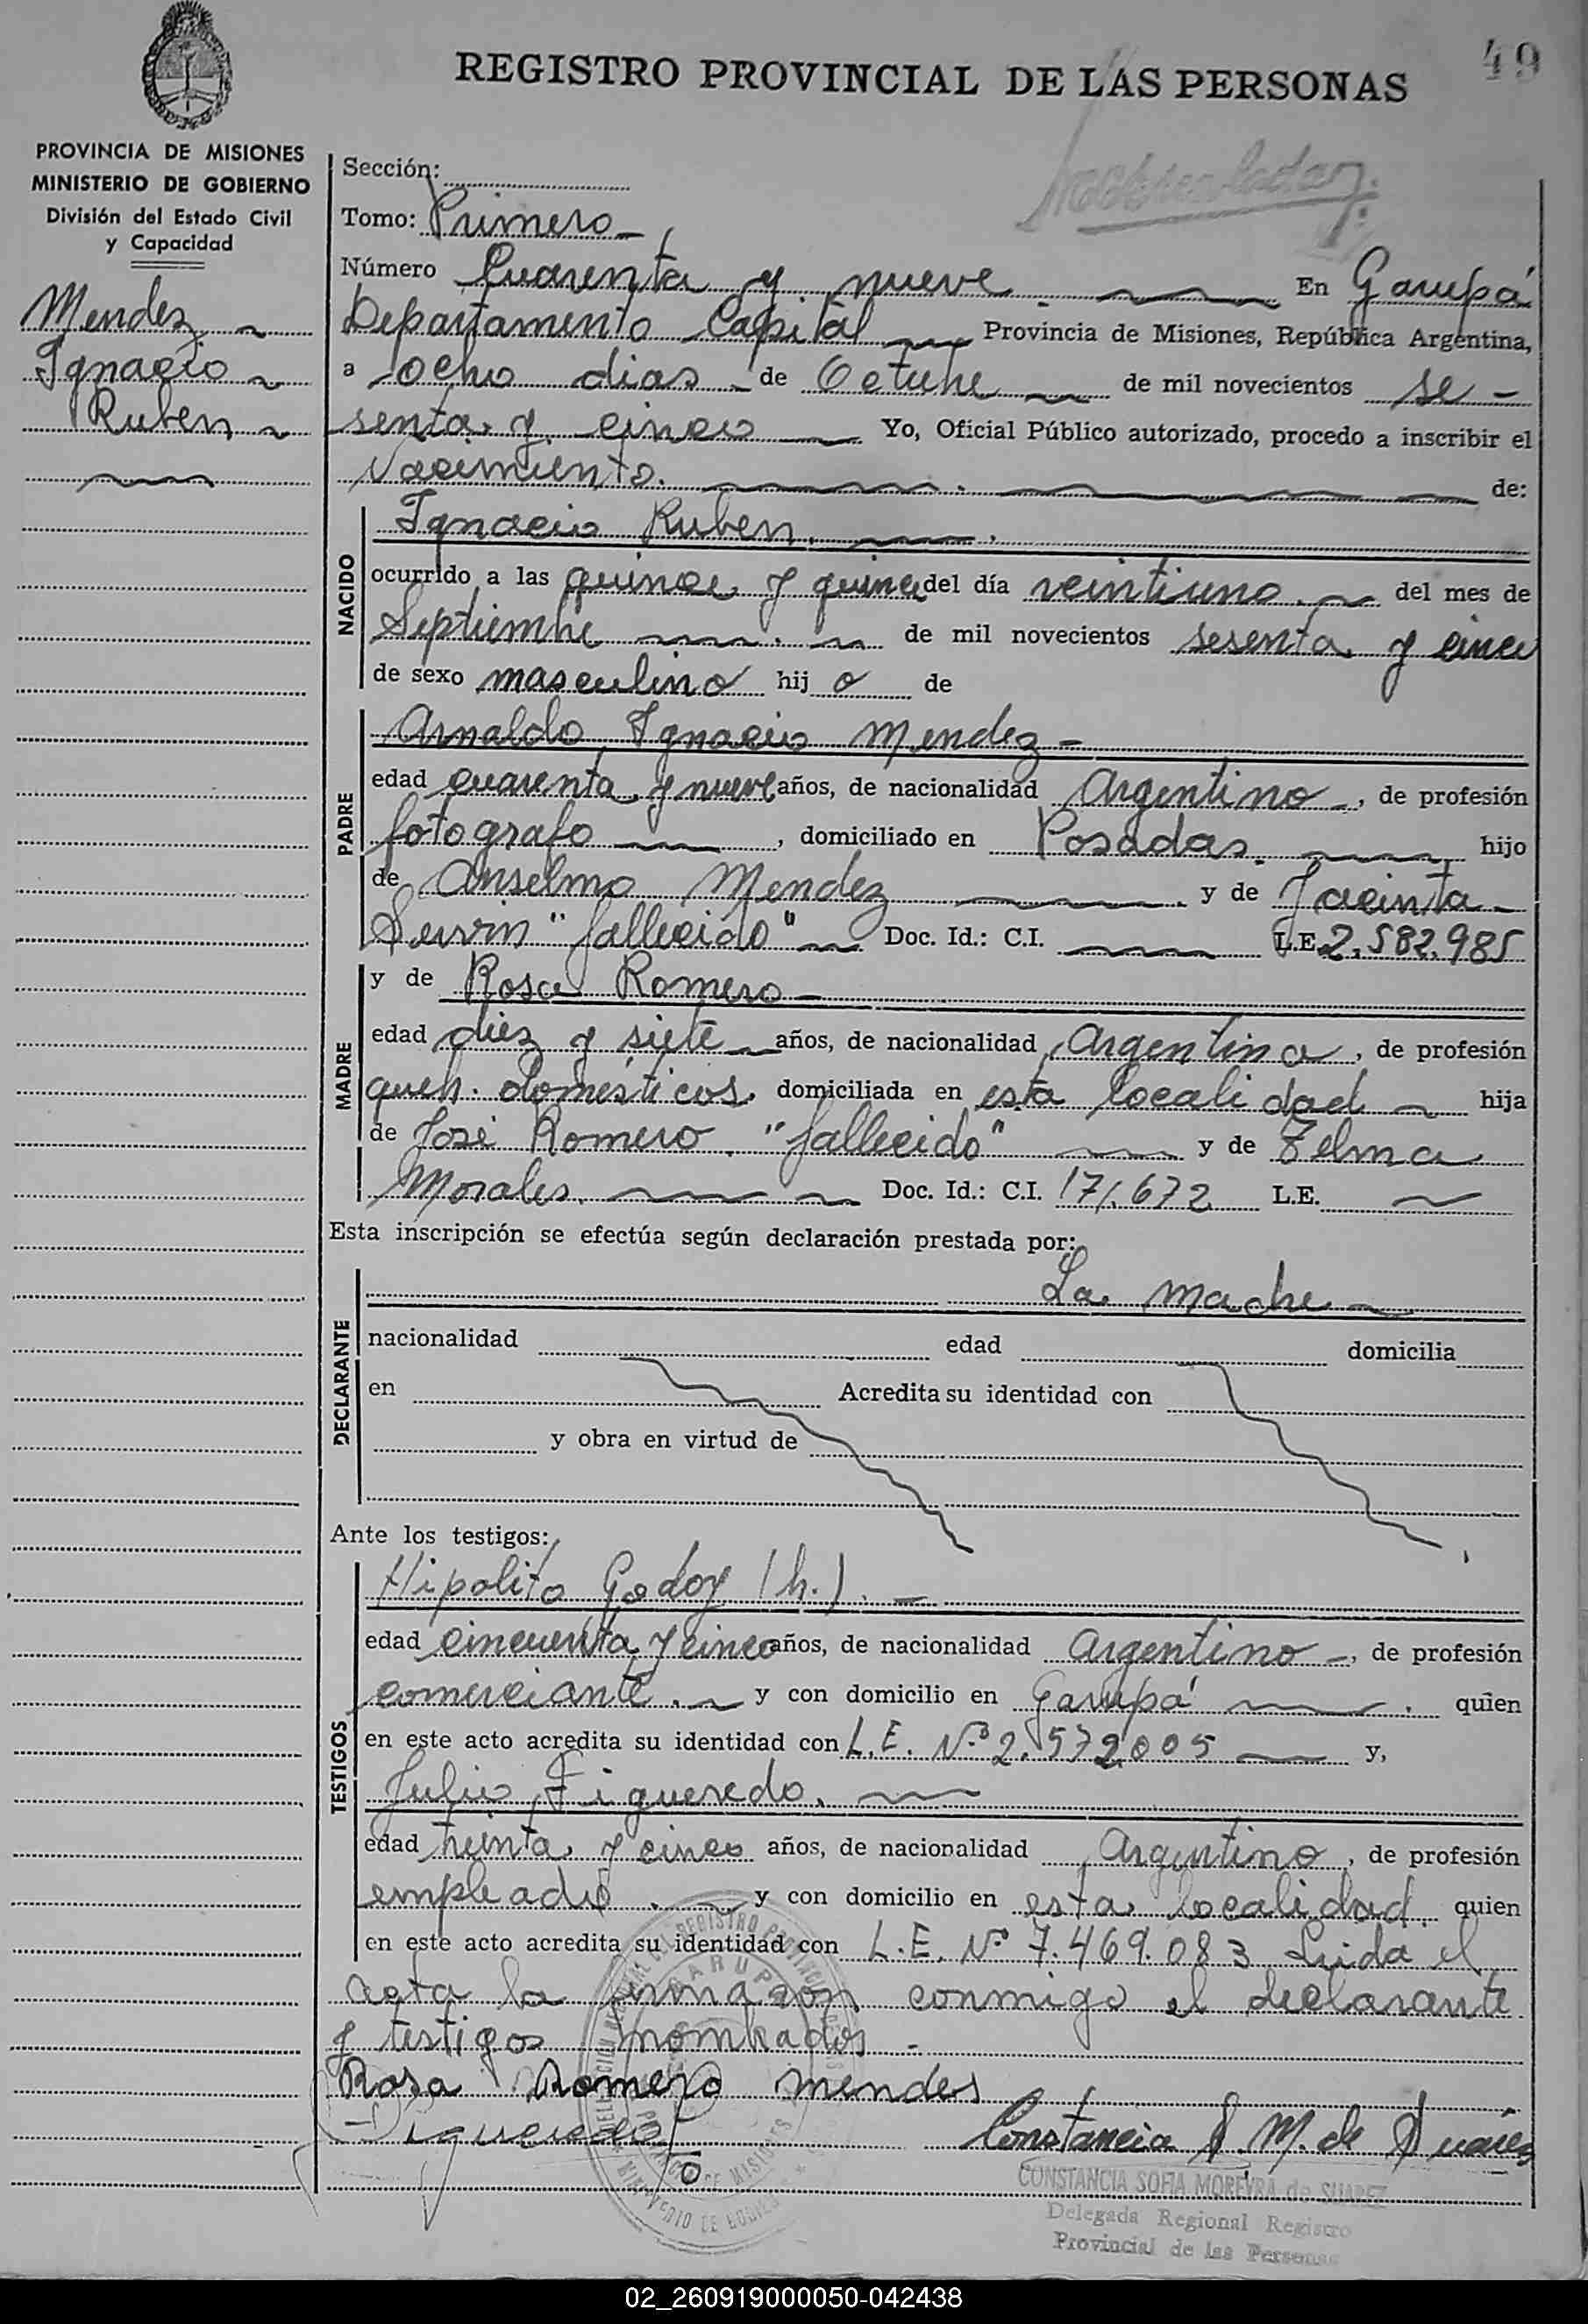 49
REGISTRO PROVINCIAL DE LAS PERSONAS
PROVINCIA DE MISIONES
MINISTERIO DE GOBIERNO
División del Estado Civil
y Capacidad
Mendez
Ignacio
Ruben
Sección:
Tomo: Primero
Número Cuarenta y nueve. En Garupá
Departamento Capital Provincia de Misiones, República Argentina,
a ocho dias de Octubre de mil novecientos se-
senta y cinco Yo, Oficial Público autorizado, procedo a inscribir el
Nacimiento. de:
NACIDO
Ignacio Ruben.
ocurrido a las quince y quince del día veintiuno. del mes de
Septiembre de mil novecientos sesenta y cinco
de sexo masculino hij o de
PADRE
Arnaldo Ignacio Mendez -
edad cuarenta y nueve años, de nacionalidad Argentino -, de profesión
fotografo , domiciliado en Posadas. hijo
de Anselmo Mendez y de Jacinta
"fallecido" Doc. Id.: C.I. L.E. 2.582.985
MADRE
y de Rosa Romero -
edad diez y siete años, de nacionalidad Argentina , de profesión
queh. domésticos, domiciliada en esta localidad hija
de José Romero "fallecido" y de Telma
Morales. Doc. Id.: C.I. 171.672 L.E.
Esta inscripción se efectúa según declaración prestada por:
DECLARANTE
La madre
nacionalidad edad domicilia
en Acredita su identidad con
y obra en virtud de
Ante los testigos:
TESTIGOS
Hipolito Godoy (h.). -
edad cincuenta y cinco años, de nacionalidad Argentino -, de profesión
comerciante. y con domicilio en Garupá . quien
en este acto acredita su identidad con L.E. Nº 2.572.005 y,
Julio Figueredo.
edad treinta y cinco años, de nacionalidad Argentino , de profesión
empleado . y con domicilio en esta localidad. quien
en este acto acredita su identidad con L.E. Nº 7.469.083 Leida el
acta la firmaron conmigo el declarante
y testigos nombrados -
Rosa Romero mendes
Figueredo
Constancia S. M. de Suárez
CONSTANCIA SOFIA MOREYRA de SUAREZ
Delegada Regional Registro
Provincial de las Personas
02_260919000050-042438